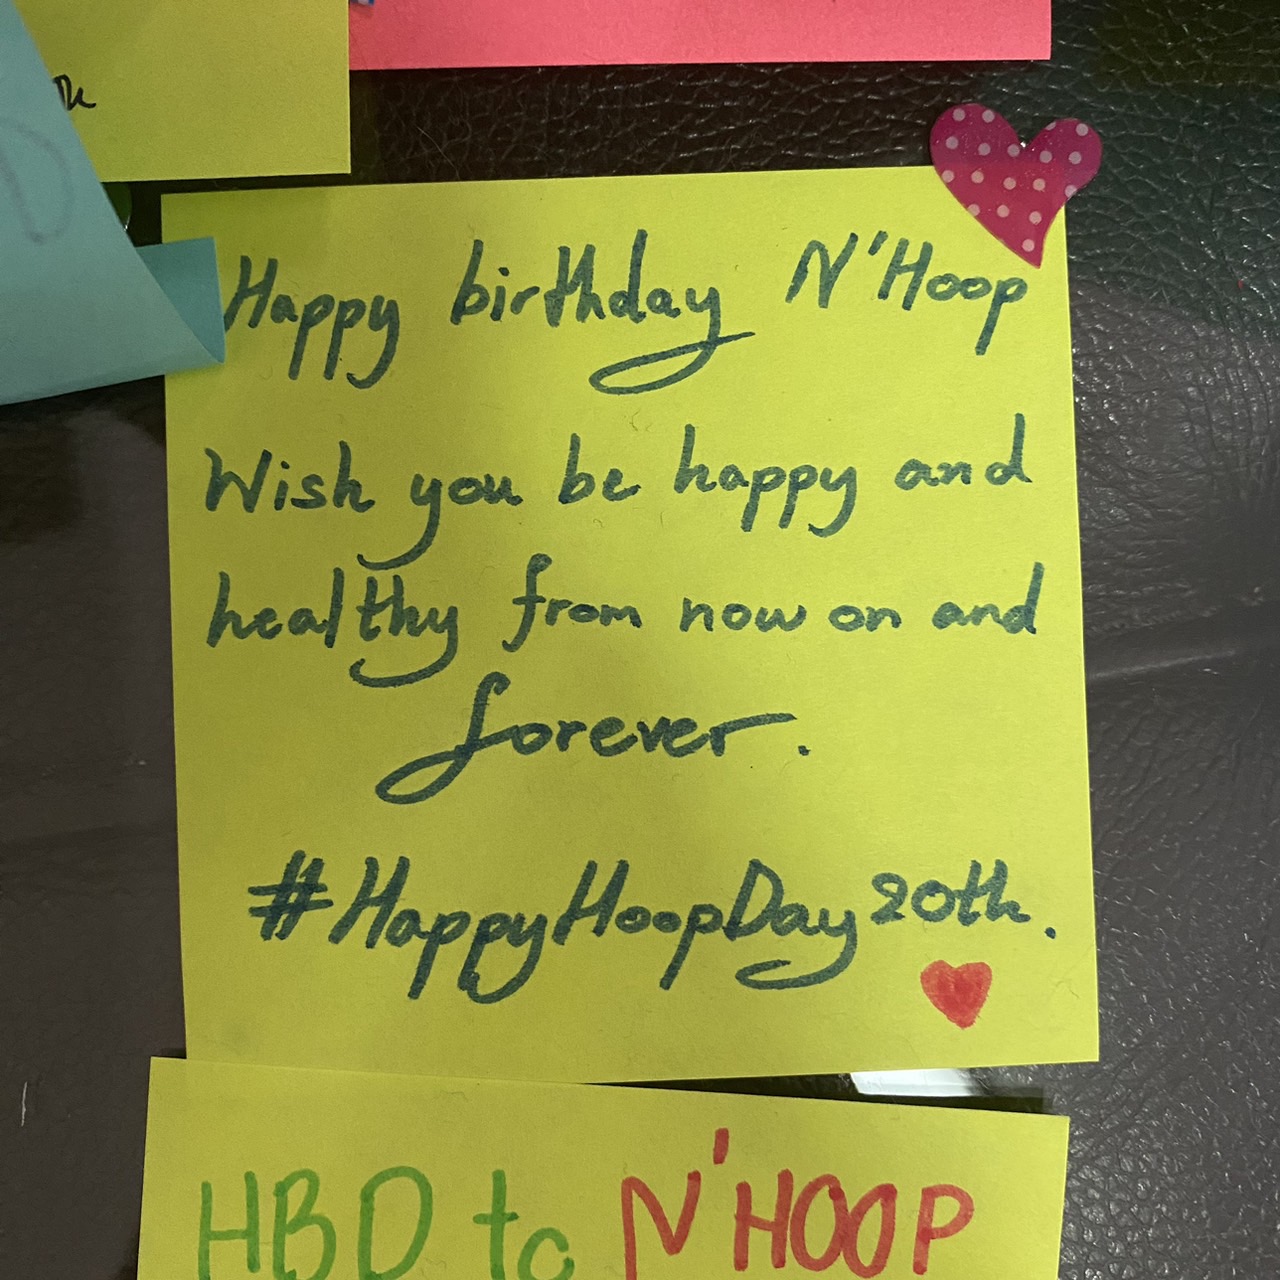 Happy birthday N'Hoop
Wish you be happy and
healthy from now on and
forever.
#HappyHoopDay20th.
HBD to N'HOOP